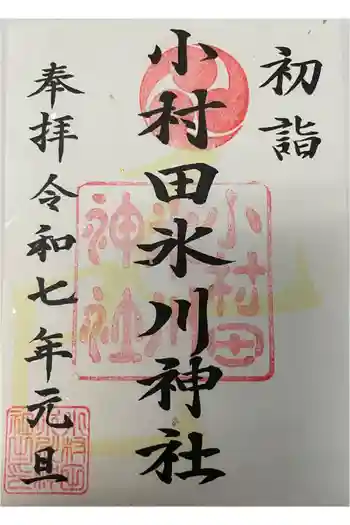 初詣
小村田氷川神社
奉拝 令和七年元旦
小村田
氷川
神社